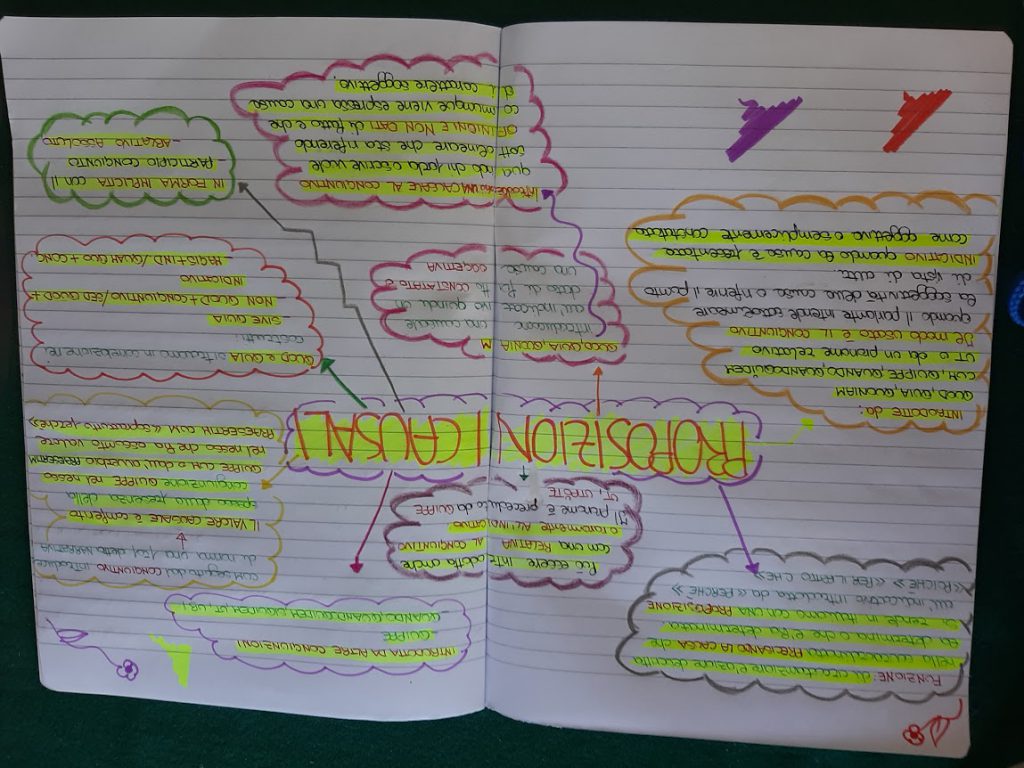 FUNZIONE: di circostanziare l'azione descritta
nella sovraordinata PRECISANDO LA CAUSA che
la determina o che l'ha determinata.
Si rende in italiano con una PROPOSIZIONE
all'indicativo introdotta da «PERCHÈ»
«POICHÈ» «PER IL FATTO CHE»
INTRODOTTA DA ALTRE CONGIUNZIONI
QUIPPE
QUANDO QUANDOQUIDEM, SIQUIDEM, UT, UBI
Può essere introdotta anche
con una RELATIVA AL CONGIUNTIVO
o raramente ALL'INDICATIVO
Il pronome è preceduto da QUIPPE
UT, UTPOTE
CUM seguito dal CONGIUNTIVO introduce
di norma una detta NARRATIVA
IL VALORE CAUSALE È conferito
spesso dalla presenza della
congiunzione QUIPPE nel nesso
QUIPPE CUM o dall'avverbio PRAESERTIM
nel nesso che ha assunto valore
PRAESERTIM CUM «soprattutto perché»
PROPOSIZIONI CAUSALI
INTRODOTTE da:
QUOD, QUIA, QUONIAM
CUM, QUIPPE, QUANDOQUIDEM
UT o da un pronome relativo
De modo usato è il CONGIUNTIVO
quando il parlante intende sottolineare
la soggettività della causa o riferire il punto
di vista di altri.
INDICATIVO quando la causa è presentata
come oggettiva o semplicemente constatata
QUOD, QUIA, QUONIAM
introducono una causale
all'indicativo quindi un
dato di fatto CONSTATATO E
una causa OGGETTIVA
QUOD e QUIA si trovano in correlazione nei
costrutti:
SIVE QUIA
NON QUOD + CONGIUNTIVO/SED QUOD +
INDICATIVO
MAGIS + IND/QUAM QUOD + CONG
Introduce una CAUSALE AL CONGIUNTIVO
quando chi parla o scrive vuole
sottolineare che sta riferendo
OPINIONI E NON DATI di fatto e che
comunque viene espressa una causa
di carattere soggettivo.
IN FORMA IMPLICITA con il
-PARTICIPIO CONGIUNTO
-ABLATIVO ASSOLUTO